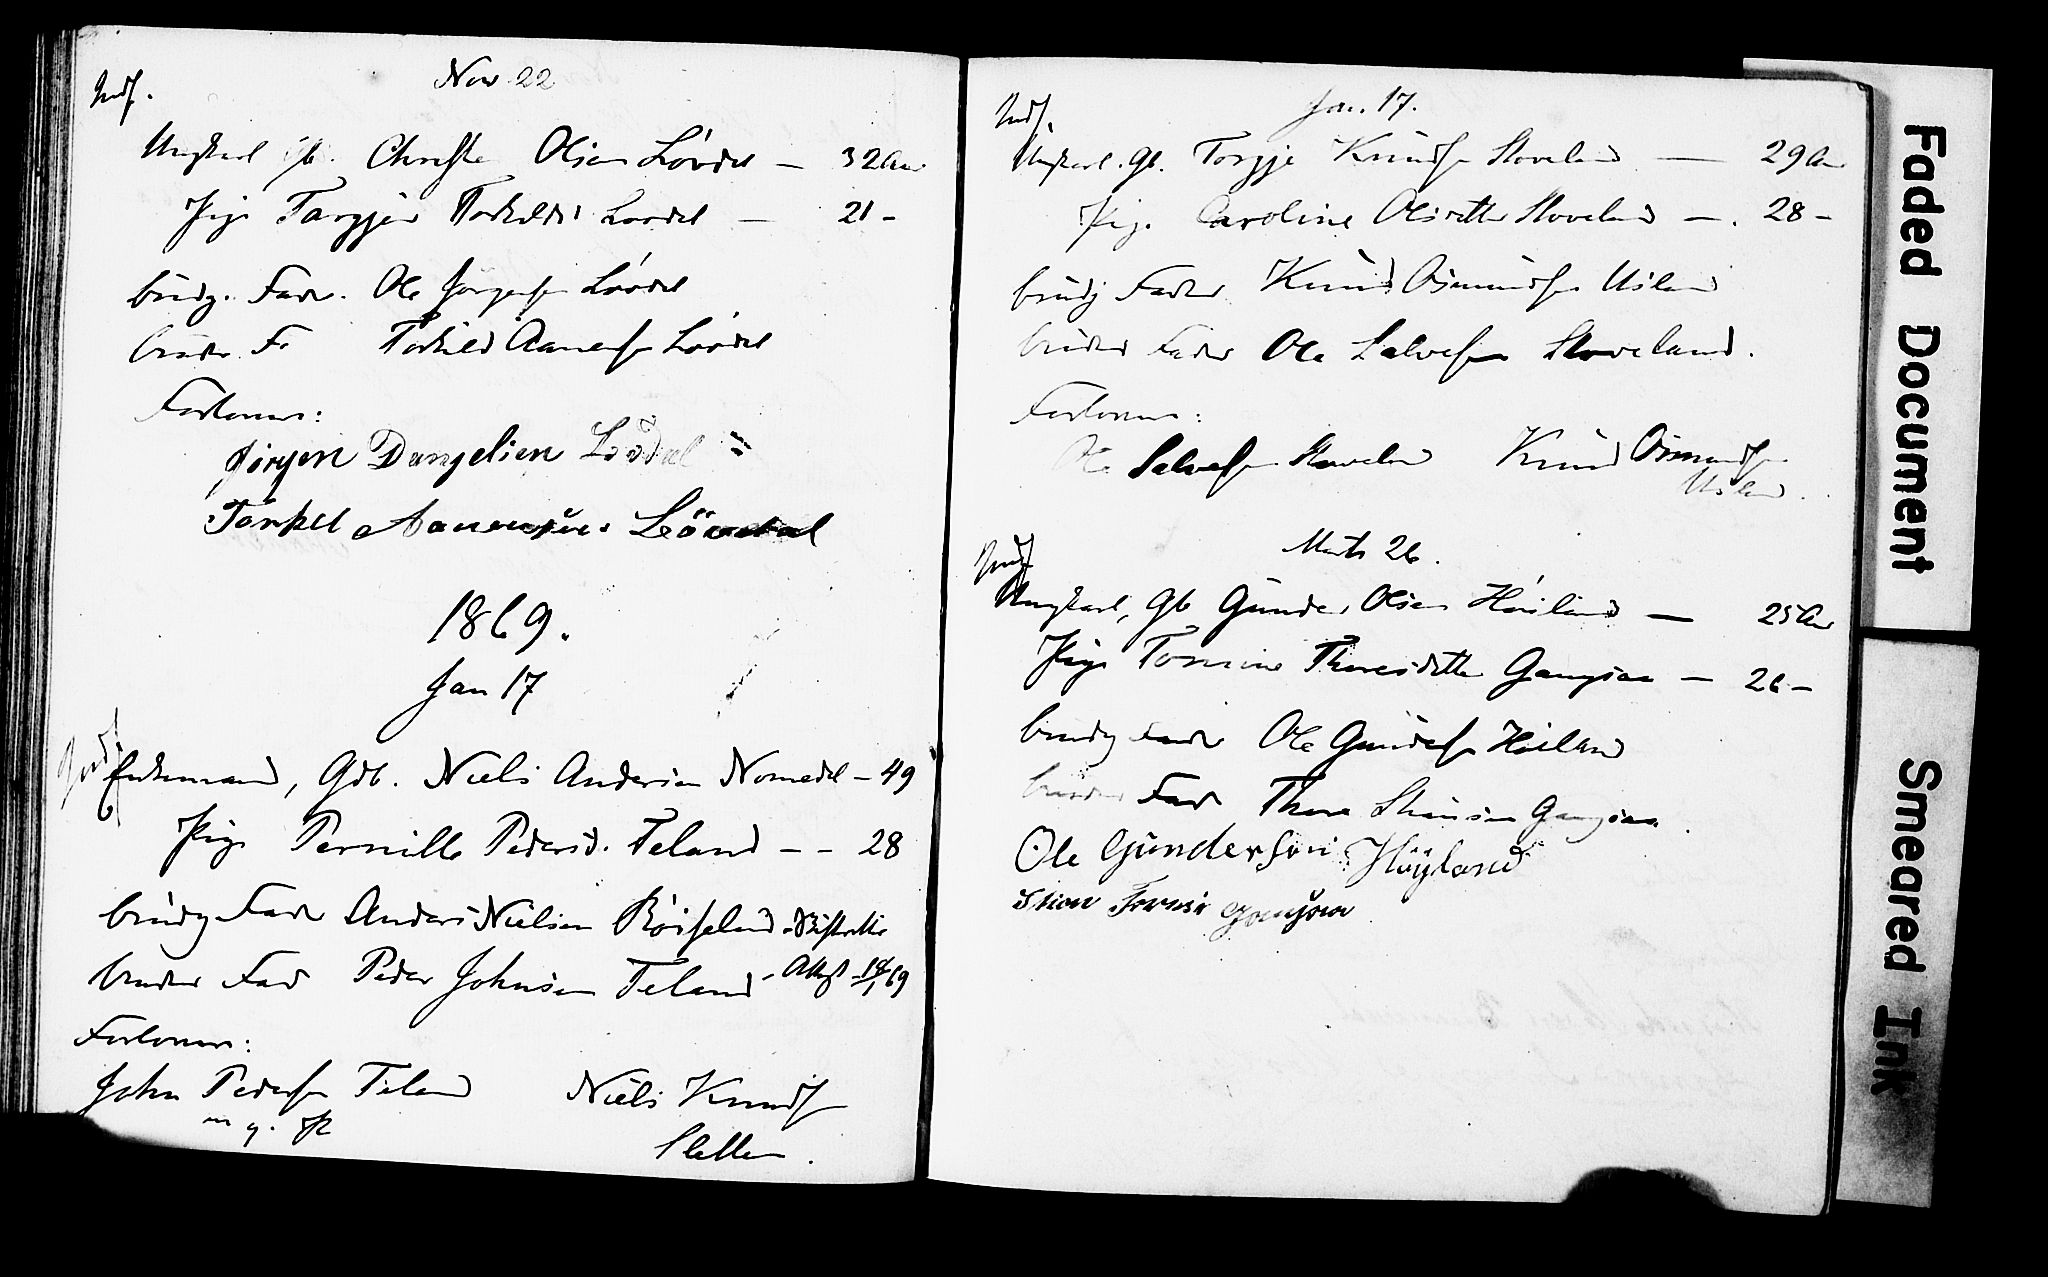 Indf.
Nov 22
Ungkarl Gb. Christen Olsen Lövdal — 32 Aar
Pige Targjer Torkildsd Lövdal — 21 -
brudg. Fader. Ole Jörgensen Lövdal
brudens F. Torkild Aanensen Lövdal
Forlovere:
Jörgen Danjelsen Lövdal
Tarkel Aanensen Lövdal
1869.
Jan 17
Indf
Enkemand, Gdb. Niels Andersen Nomedal - 49
Pige Pernille Pedersd. Teland - - 28
brudg Fader Anders Nielsen Röiseland
bruden Fad Peder Johnsen Teland - Attest 19/1 69
Forlovere:
John Pedersen Teland
m. p. P.
Niels Knudsen
Sletten.
Indf.
Jan. 17.
Ungkarl. Gb. Torgje Knudsen Stoveland — 29 Aar
Pige. Caroline Olsdatter Stoveland — . 28 -
brudg Fader Knud Osmundsen Usland
brudens Fader Ole Salvesen Stoveland.
Forlovere:
Ole Salvesen Stoveland
Knud Osmundsen
Usland.
Marts 26.
Indf
Ungkarl, Gb Gunder Olsen Höiland — 25 Aar
Pige Tomine Theresdatter Gangsaa — 26 -
brudg Fader Ole Gundersen Höiland
bruden Fader There Stiansen Gangsaa.
Ole Gundersön Höyland
Stian Tarresen Gangsaa
Faded Document
Smeared Ink